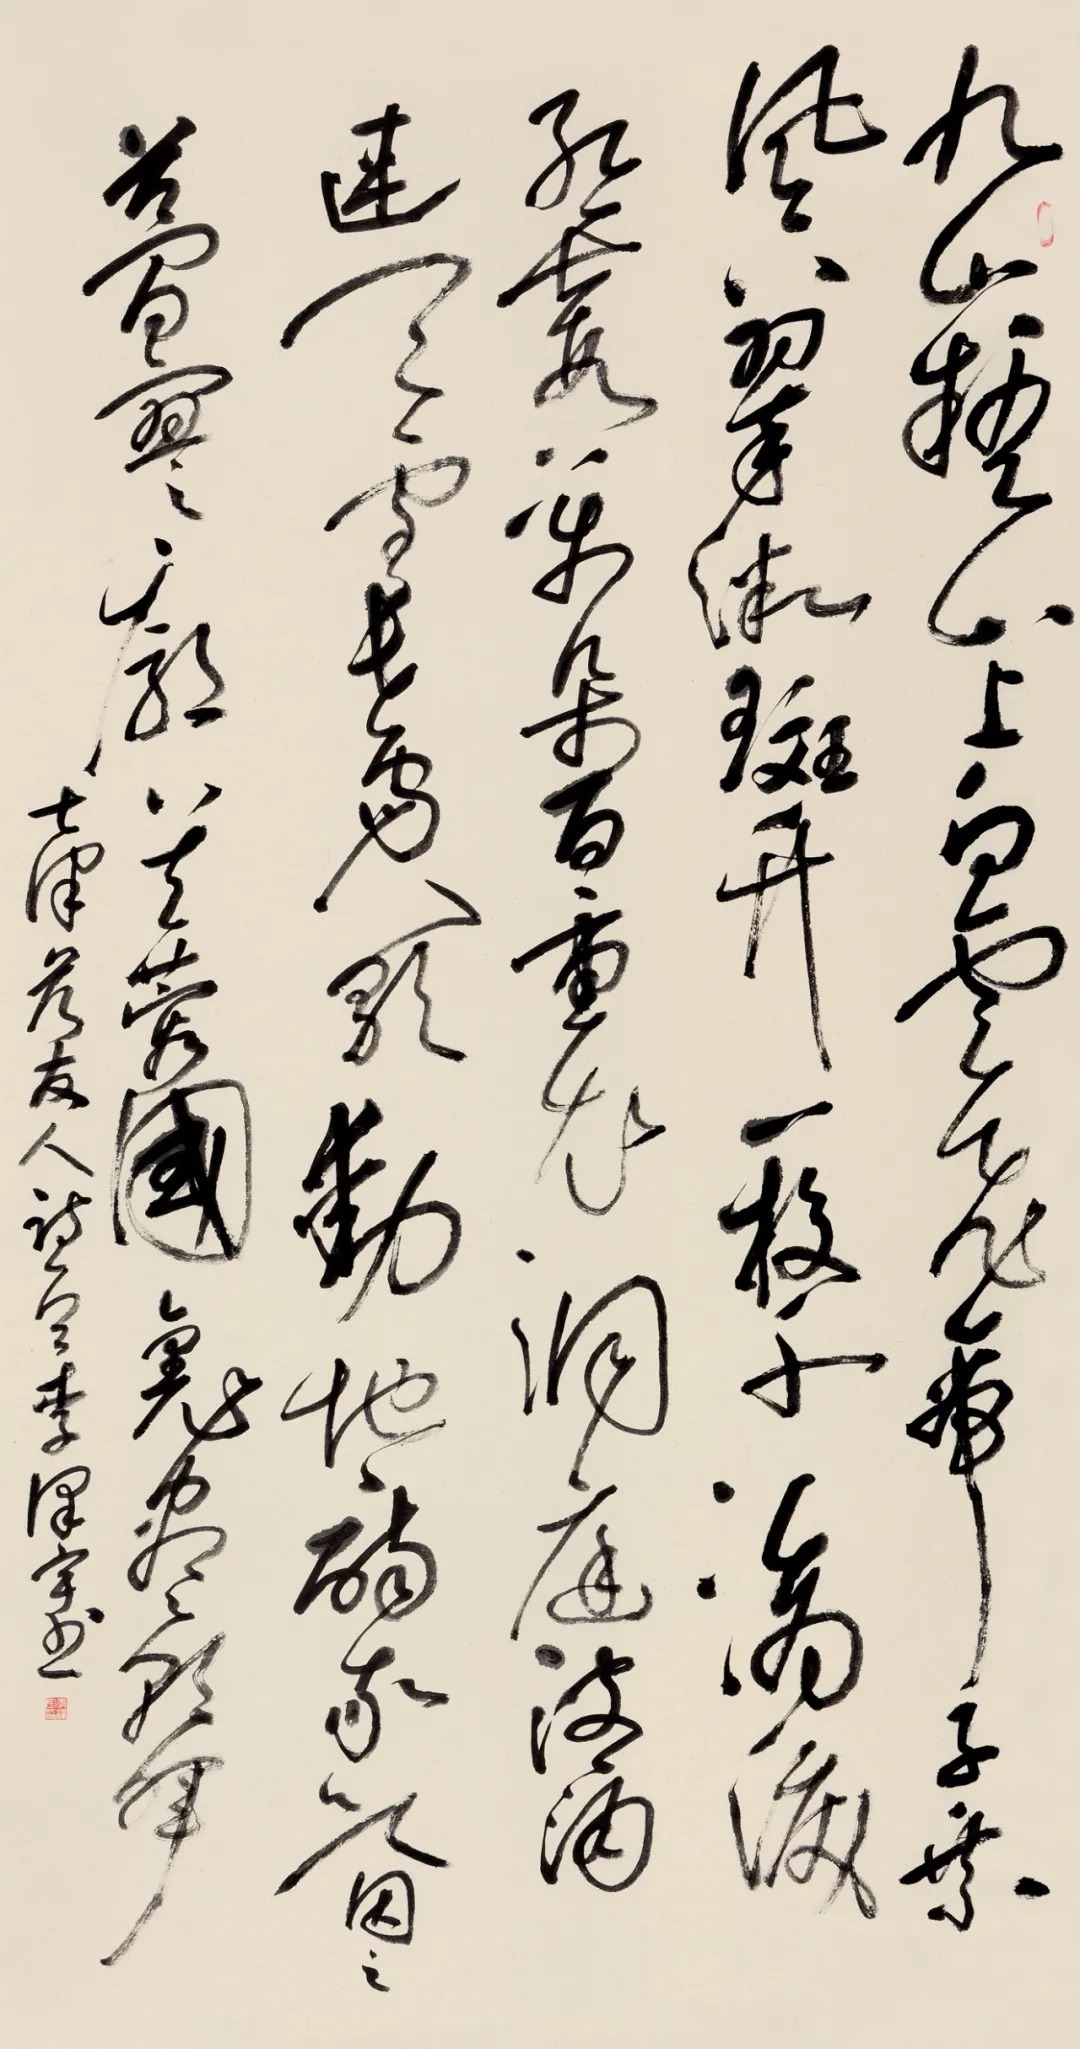 九嶷山上白雲飛帝子乘
風下翠微斑竹一枝千滴淚
紅霞萬朵百重衣洞庭波涌
連天雪長島人歌動地詩我欲因之
夢寥廓芙蓉國裏盡朝暉
七律答友人詩李澤宇書